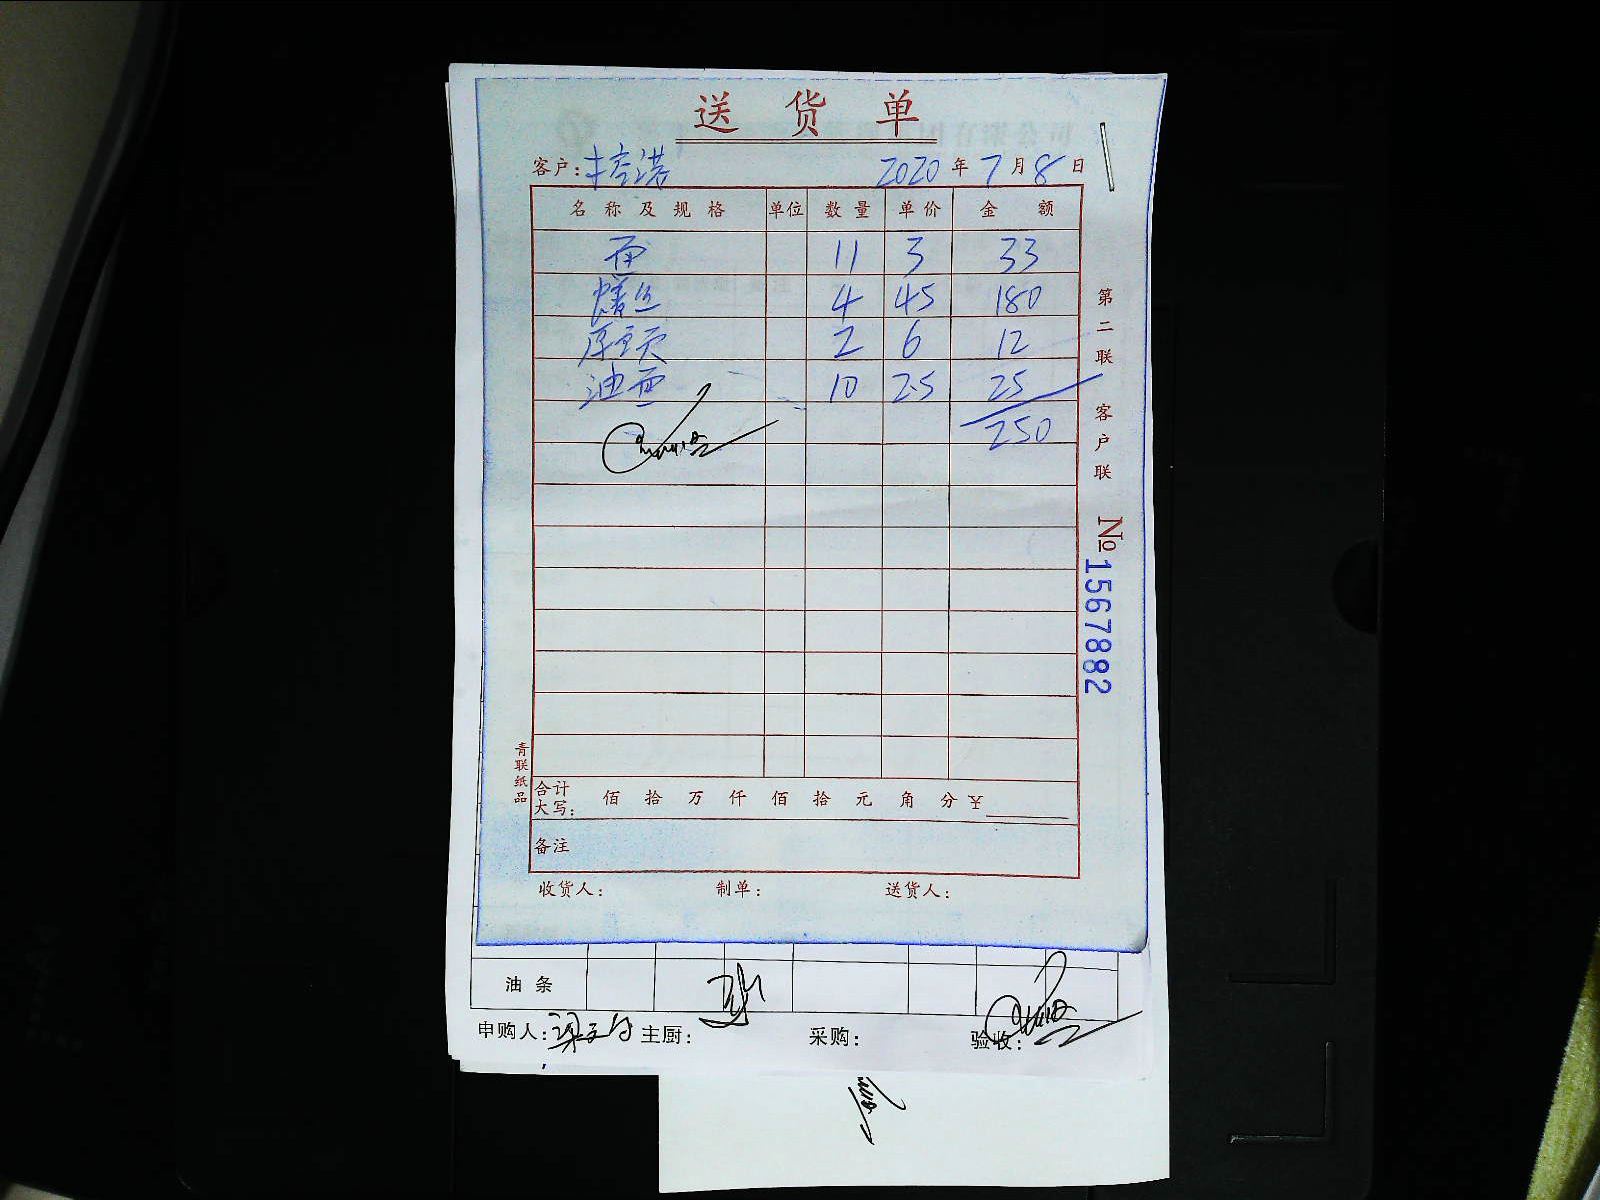 送 货 单
客户: 2020 年 7 月 8 日
名 称 及 规 格 单位 数 量 单 价 金 额
面 11 3 33
4 45 180
2 6 12
油面 10 2.5 25
250
第二联 客户联
№1567882
青联纸品
合计大写: 佰 拾 万 仟 佰 拾 元 角 分 ¥
备注
收货人: 制单: 送货人:
油 条
申购人: 主厨: 采购: 验收: